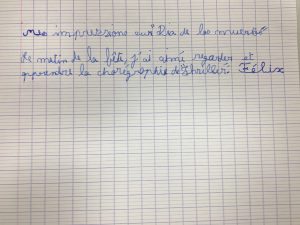 Mes impressions sur "Dia de los muertos"
Le matin de la fête, j'ai aimé regarder et
apprendre la chorégraphie de "thriller". Félix